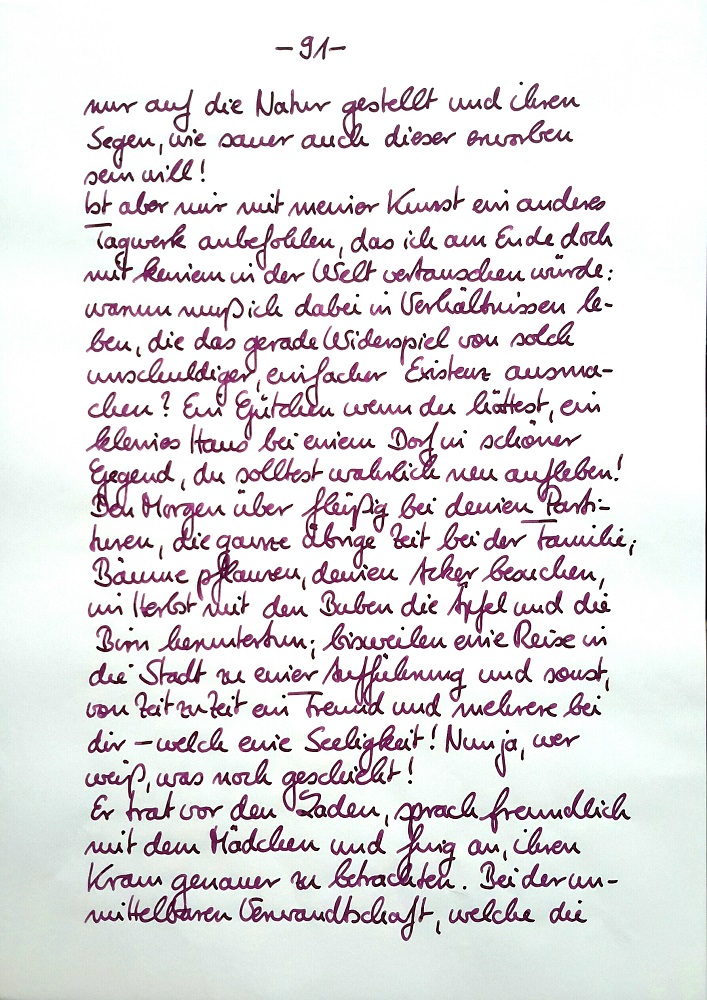 – 91 –
nur auf die Natur gestellt und ihren
Segen, wie sauer auch dieser erworben
sein will!
Ist aber mir mit meiner Kunst ein anderes
Tagwerk anbefohlen, das ich am Ende doch
mit keinem in der Welt vertauschen würde:
warum muß ich dabei in Verhältnissen le-
ben, die das gerade Widerspiel von solch
unschuldiger, einfacher Existenz ausma-
chen? Ein Gütchen wenn du hättest, ein
kleines Haus bei einem Dorf in schöner
Gegend, du solltest wahrlich neu aufleben!
Den Morgen über fleißig bei deinen Parti-
turen, die ganze übrige Zeit bei der Familie;
Bäume pflanzen, deinen Acker besuchen,
im Herbst mit den Buben die Äpfel und die
Birn heruntertun; bisweilen eine Reise in
die Stadt zu einer Aufführung und sonst,
von Zeit zu Zeit ein Freund und mehrere bei
dir – welch eine Seeligkeit! Nun ja, wer
weiß, was noch geschieht!
Er trat vor den Laden, sprach freundlich
mit dem Mädchen und fing an, ihren
Kram genauer zu betrachten. Bei der un-
mittelbaren Verwandtschaft, welche die